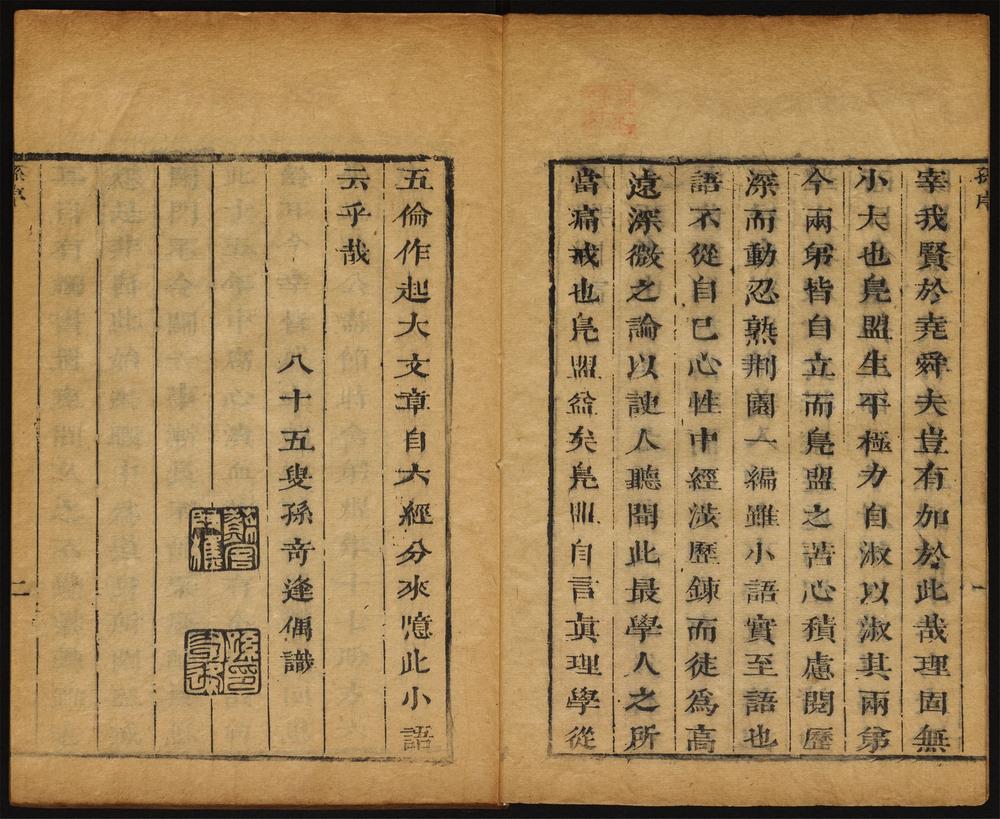 孫序
宰我賢於堯舜夫豈有加於此哉理固無
小大也鳧盟生平極力自淑以淑其兩弟
今兩弟皆自立而鳧盟之苦心積慮閱歷
深而動忍熟荆園一編雖小語實至語也
語不從自已心性中經洪歷鍊而徒爲高
遠深微之論以諛人聽聞此最學人之所
當痛戒也鳧盟益矣鳧盟自言眞理學從
一
五倫作起大文章自六經分來噫此小語
云乎哉
八十五叟孫奇逢偶識
孫序
二